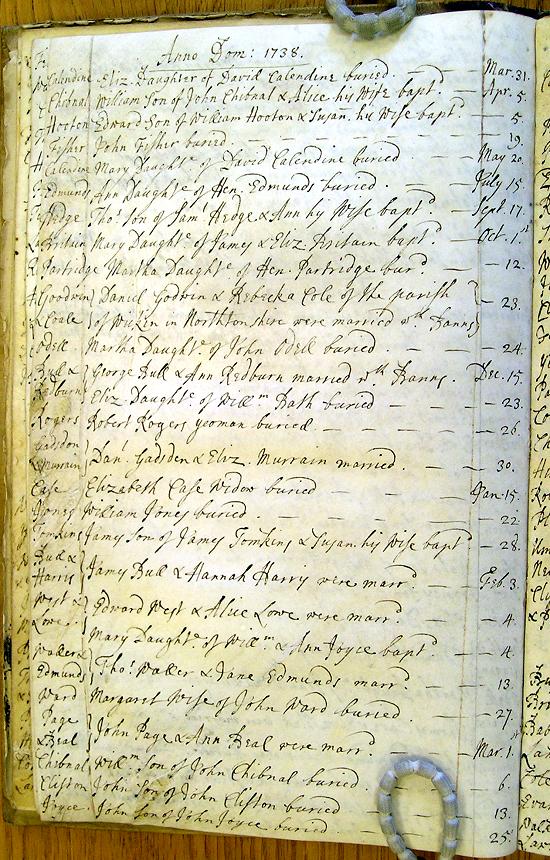 Anno Dom: 1738.
Calendine Eliz. Daughter of David Calendine buried. Mar. 31.
Chibnal William Son of John Chibnal & Alice his Wife bapt.d Apr. 5.
Hooton Edward Son of William Hooton & Susan. his Wife bapt.d 5.
Fisher John Fisher buried. 19.
Calendine Mary Daught.e of David Calendine buried May 20.
Edmunds Ann Daught.e of Hen. Edmunds buried. July 15.
Hedge Tho.s Son of Sam.l Hedge & Ann his Wife bapt.d Sept. 17.
Britain Mary Daught.e of James & Eliz. Britain bapt.d Oct. 1.st
Partridge Martha Daught.e of Hen. Partridge bur.d 12.
Goodwin Daniel Godwin & Rebecka Cole of the parish
& Coale of in Northtonshire were married wth Banns 23.
Odell Martha Daught.e of John Odell buried. 24.
Bull & George Bull & Ann Redburn married wth Banns. Dec. 15.
Redburn
Eliz. Daught.e of Will.m Bath buried 23.
Rogers Robert Rogers yeoman buried 26.
Gadsdon
& Murrain Dan.l Gadsden & Eliz. Murrain married. 30.
Case Elizabeth Case Widow buried Jan. 15.
Jones William Jones buried. 22.
Tomkins James Son of James Tomkins & Susan. his Wife bapt.d 28.
Bull &
Harris James Bull & Hannah Harris were marr.d Feb. 3.
West &
Lowe Edward West & Alice Lowe were marr.d 4.
Mary Daught.e of Will.m & Ann Joyce bapt.d 4.
Walker &
Edmunds Tho.s Walker & Jane Edmunds marr.d 13.
Ward Margaret Wife of John Ward buried. 27.
Page
& Beal John Page & Ann Beal were marr.d Mar. 1.st
Chibnal Will.m Son of John Chibnal buried. 6.
Clifton John Son of John Clifton buried 13.
Joyce John Son of John Joyce buried 25.